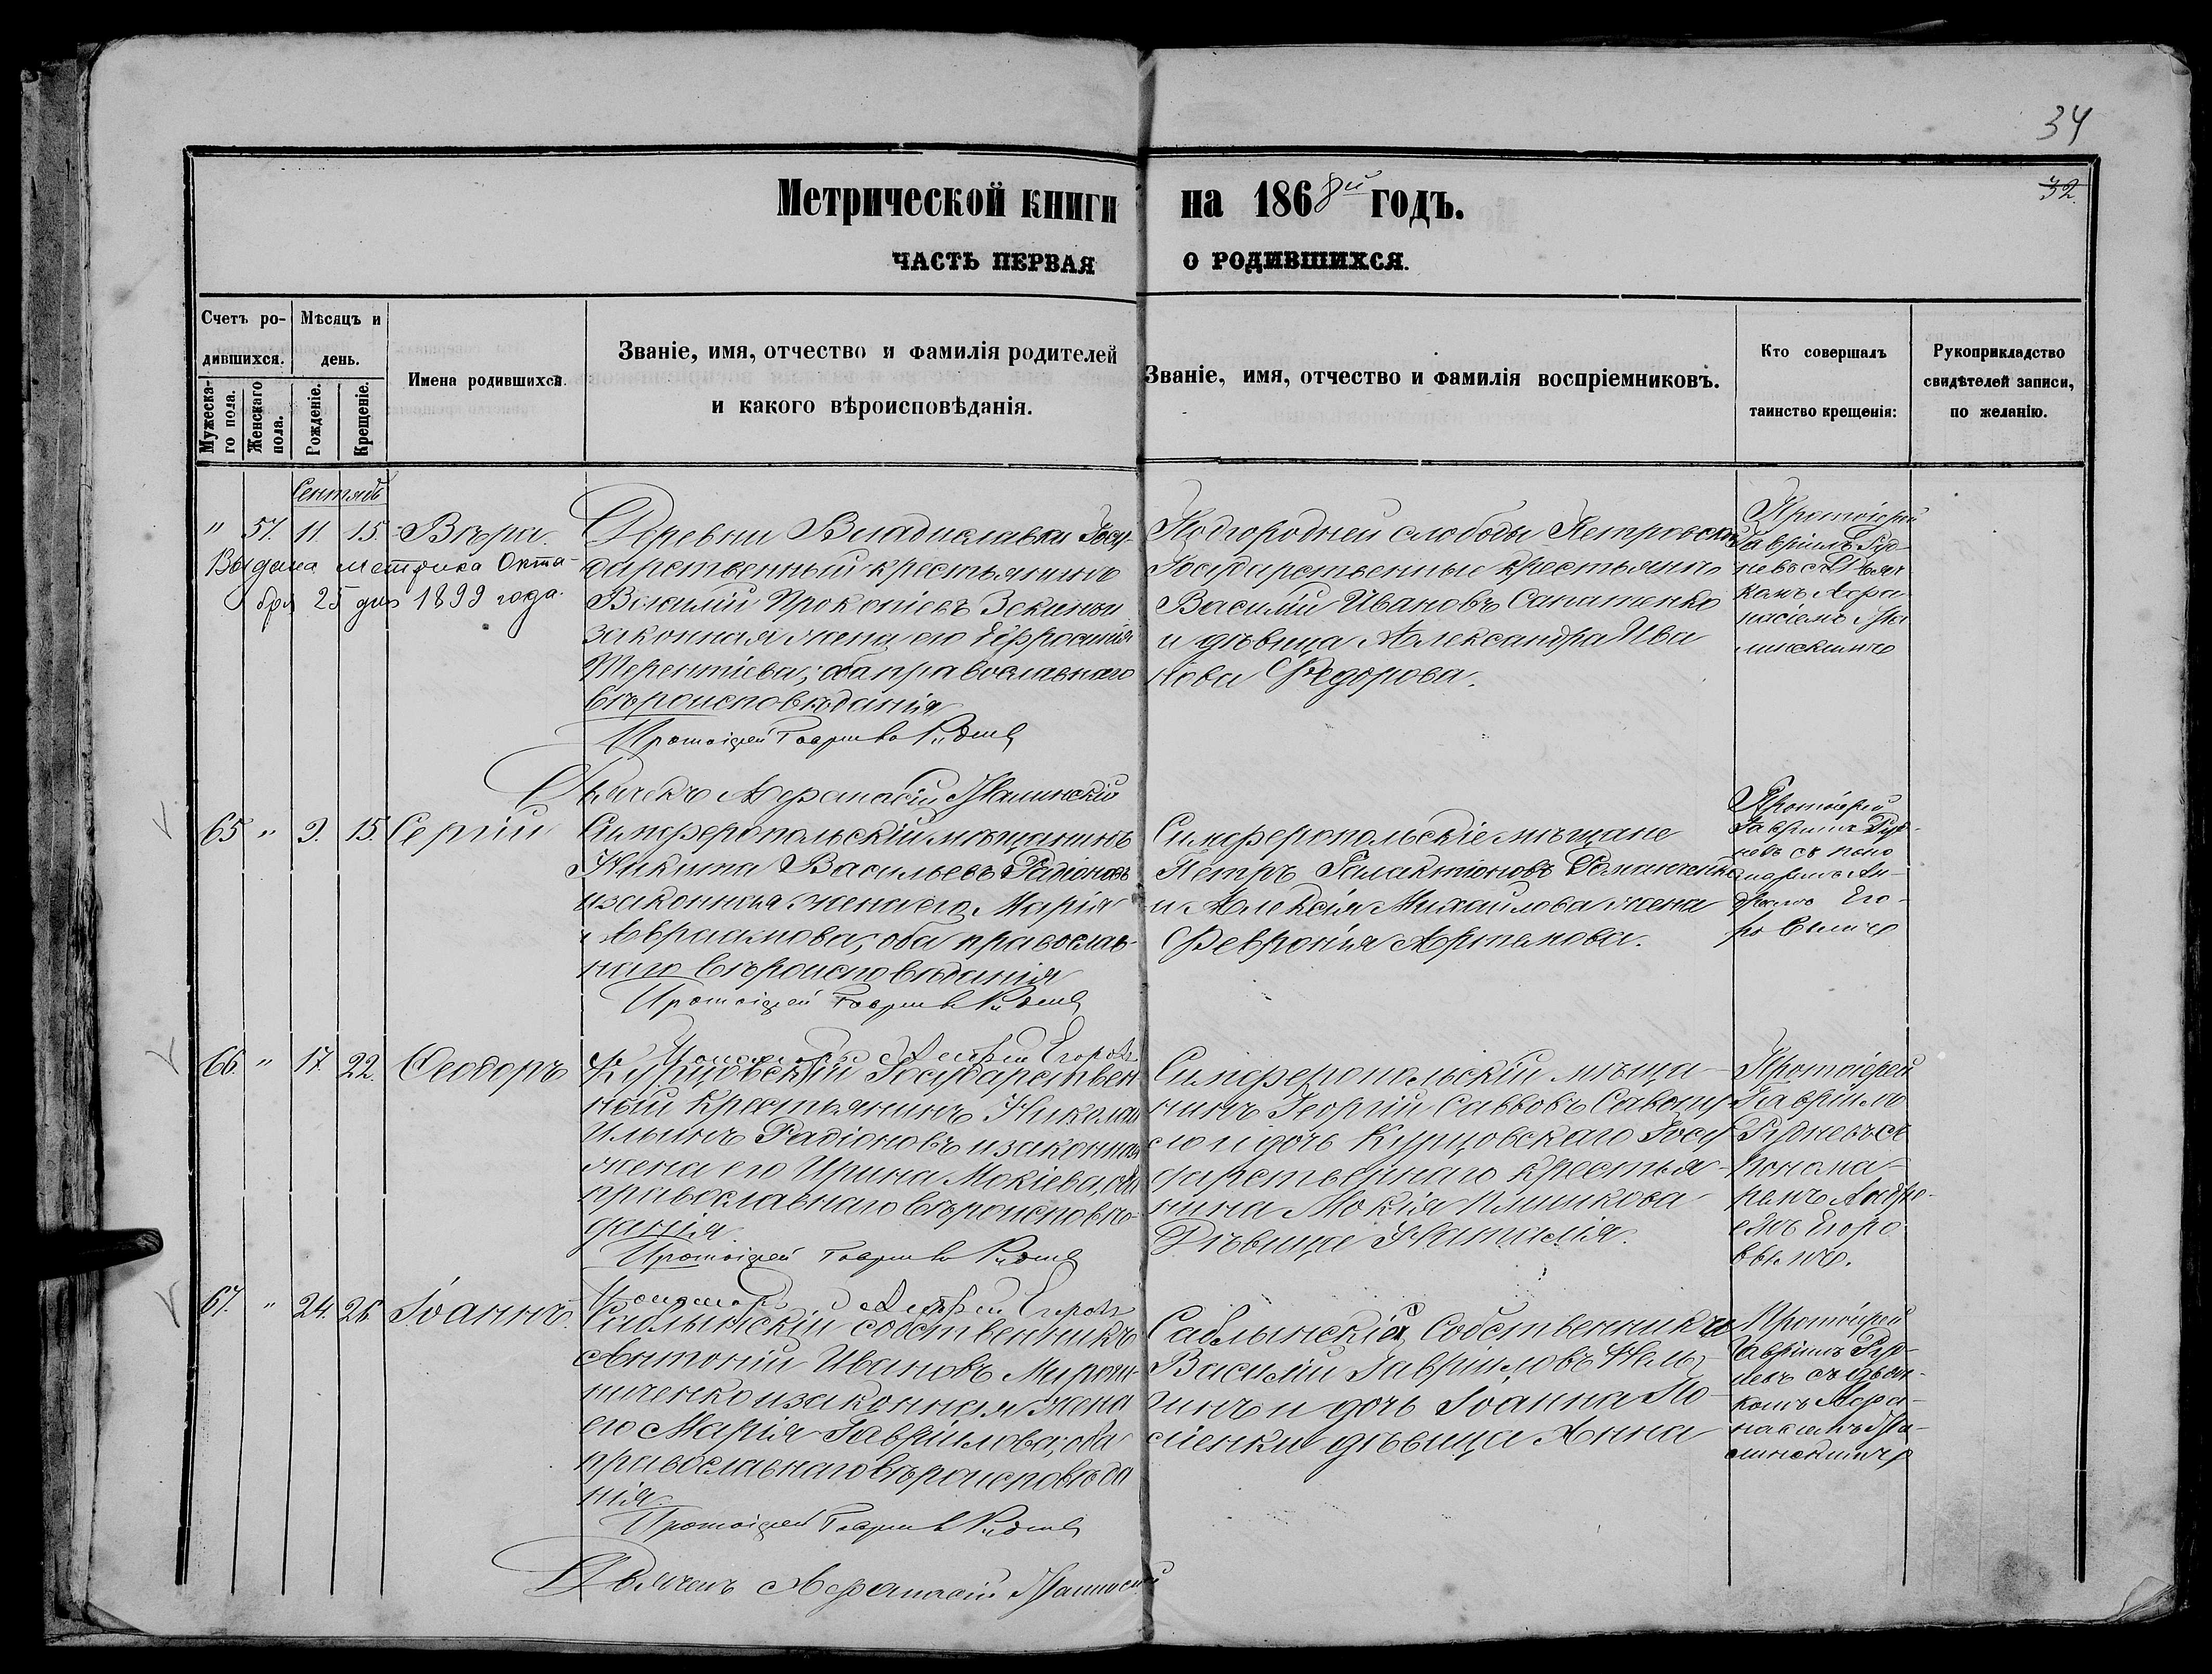 34
32.
Метрической книги на 1868й годъ.
ЧАСТЬ ПЕРВАЯ О РОДИВШИХСЯ.
Счетъ ро-
дившихся.
Мужеска-
го пола.
Женскаго
пола.
Мѣсяцъ и
день.
Рожденіе.
Крещеніе.
Имена родившихся.
Званіе, имя, отчество и фамилія родителей
и какого вѣроисповѣданія.
Званіе, имя, отчество и фамилія воспріемниковъ.
Кто совершалъ
таинство крещенія:
Рукоприкладство
свидѣтелей записи,
по желанію.
Сентябъ
" 57. 11 15. Вѣра.
Выдана метрика Октя-
бря 25 дня 1899 года.
Деревни Владиславки Госу-
дарственный крестьянинъ
Василій Прокопіевъ
законная жена его Ефросинія
Терентіева, оба православнаго
вѣроисповѣданія
Протоіерей Гавриилъ Рудневъ
Дьячекъ Афанасій
Подгородней слободы Петровской
Государственный крестьянинъ
Василій Ивановъ Сапатенко
и дѣвица Александра Ива
нова Федорова.
Протоіерей
Гавріилъ Руд-
невъ съ Дьяч
комъ Афа
насіемъ
65 " 9. 15. Сергій
Симферопольскій мѣщанинъ
Никита Васильевъ Радіоновъ
и законная жена его Марія
Авраамова, оба православ-
наго вѣроисповѣданія
Протоіерей Гавриилъ Рудневъ
Пономарь Андрей Егоровъ
Симферопольскіе мѣщане
Петръ Галактіоновъ Романченко
и Алексія Михаилова жена
Февронія Артемова.
Протоіерей
Гавріилъ Руд-
невъ съ поно
маремъ Ан-
дреемъ Его-
ровымъ
66. " 17. 22. Ѳеодоръ
Курцовскій Государствен
ный крестьянинъ Николай
Ильинъ Радіоновъ и законная
жена его Ирина Мокіева, оба
православнаго вѣроисповѣ-
данія.
Протоіерей Гавриилъ Рудневъ
Пономарь Андрей Егоровъ
Симферопольскій мѣща-
нинъ Георгій Савовъ
и дочь Курцовскаго Госу
дарственнаго крестья-
нина Мокія
Дѣвица Наталія.
Протоіерей
Гавріилъ
Рудневъ съ
понома-
ремъ Андре-
емъ Егоро
вымъ.
67. " 24. 26. Іоаннъ.
Саблынскій собственникъ
Антоній Ивановъ Мирош-
ниченко и законная жена
его Марія Гавріилова, оба
православнаго вѣроисповѣда
нія.
Протоіерей Гавриилъ Рудневъ
Дьячекъ Афанасій
Саблынскій Собственникъ
Василій Гавріиловъ
и дочь Іоанна
дѣвица Анна
Протоіерей
Гавріилъ Руд-
невъ съ дьяч-
комъ Афа-
насіемъ